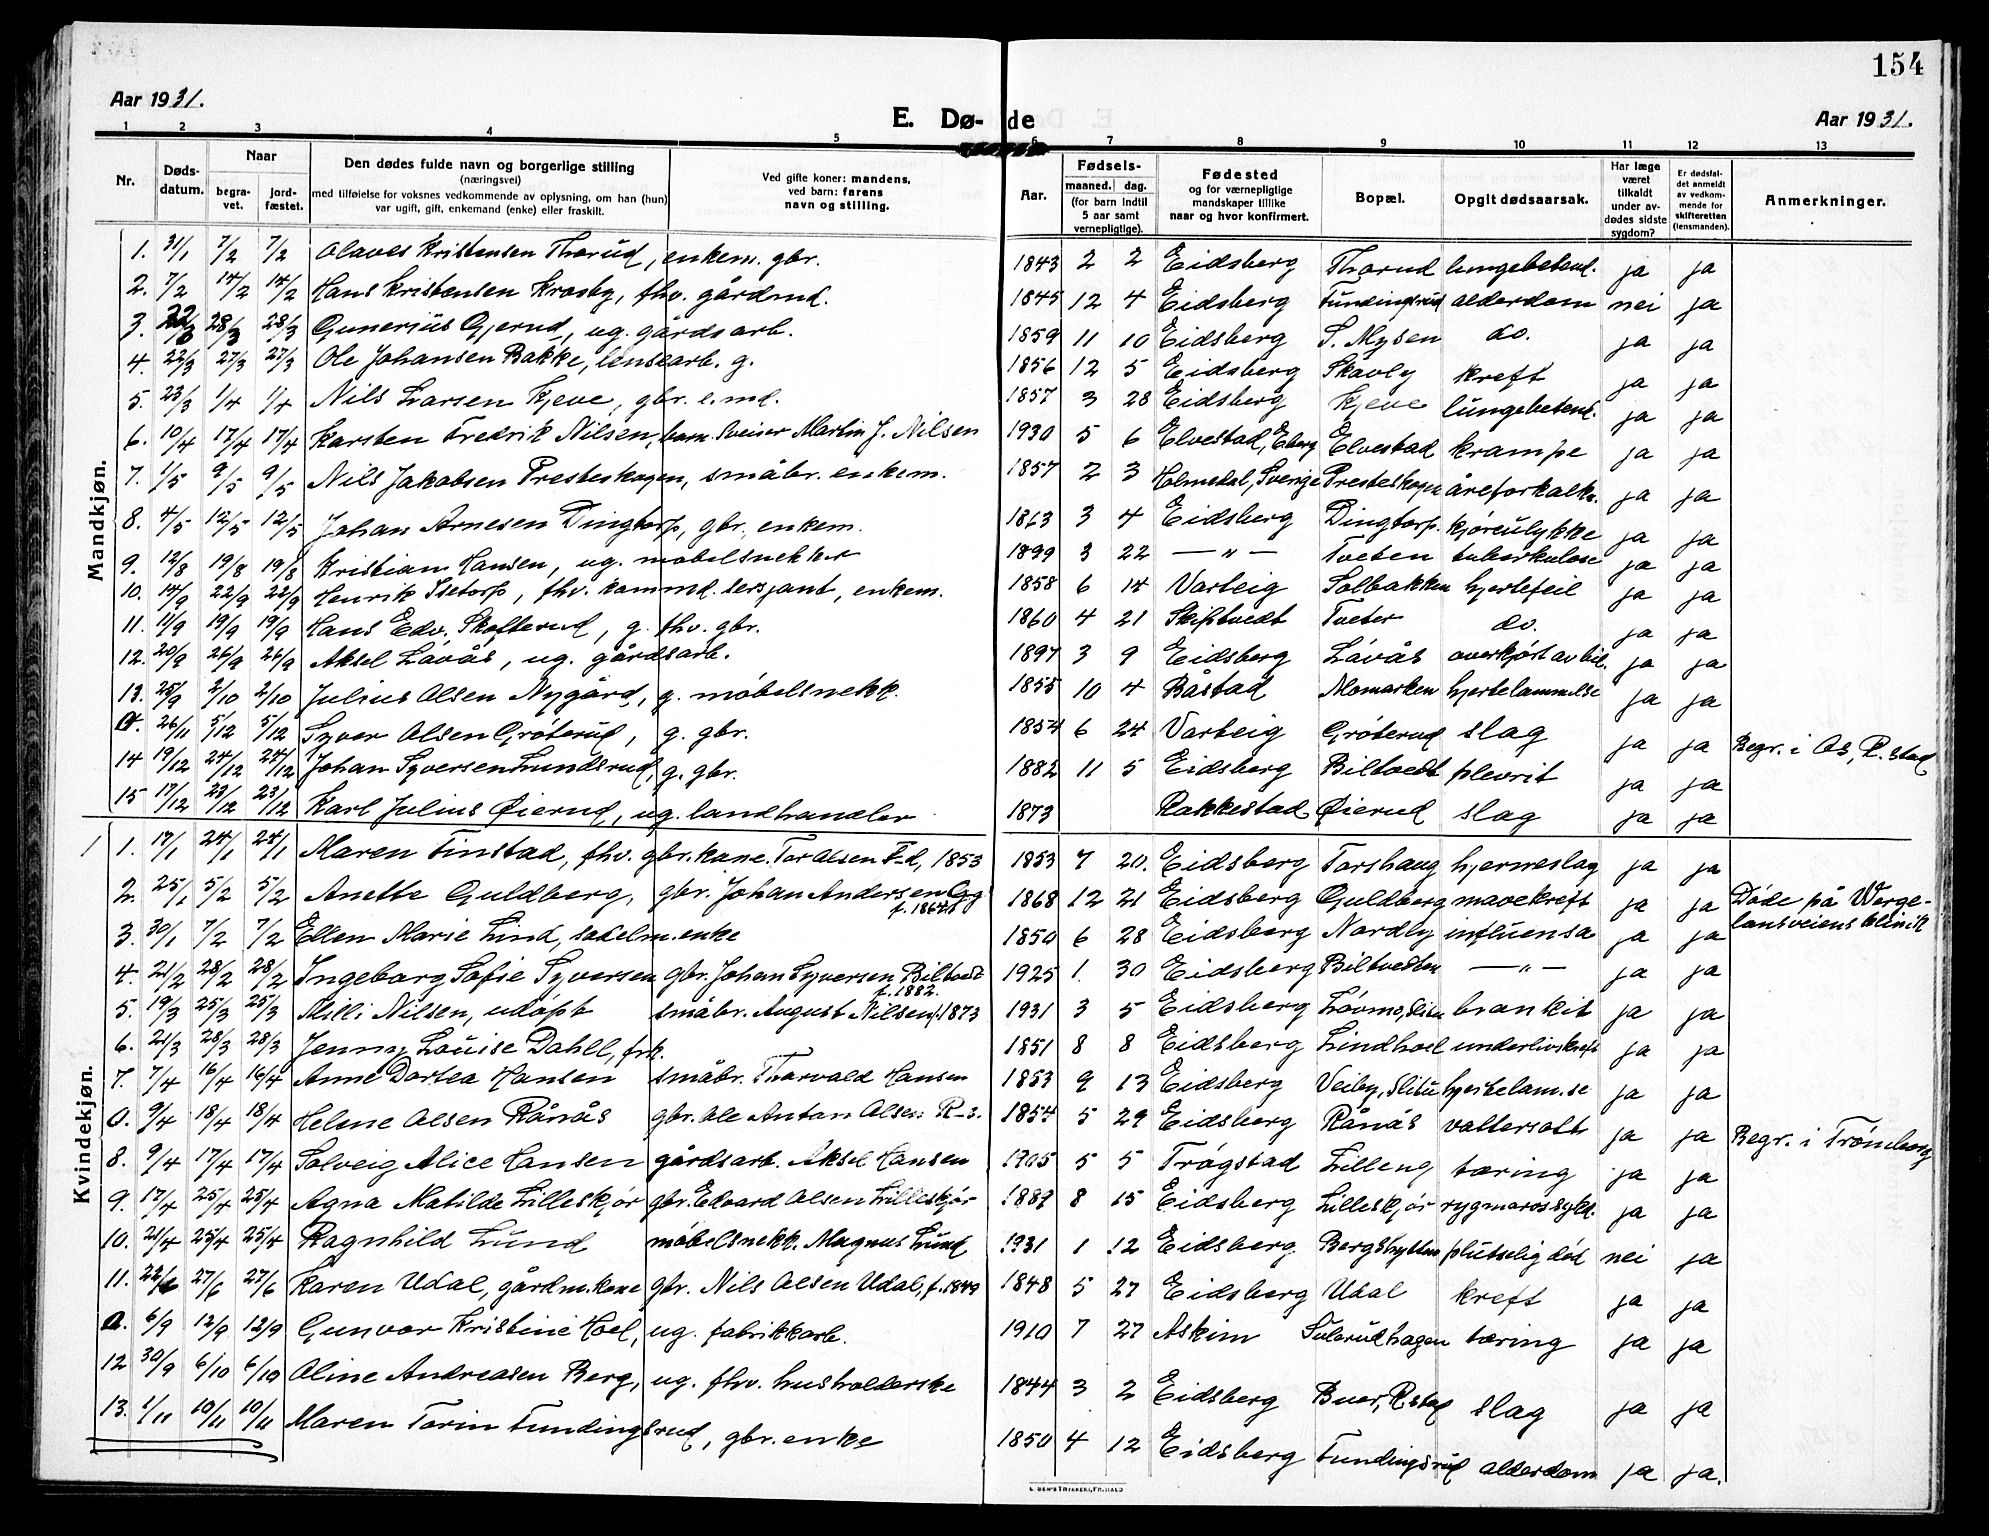 154
Aar 1931.
E. Dø- de
Aar 1931.
1 2 3 4 5 6 7 8 9 10 11 12 13
Nr.
Døds-datum.
Naar
begra-vet.
jord-fæstet.
Den dødes fulde navn og borgerlige stilling
(næringsvei)
med tilføielse for voksnes vedkommende av oplysning, om han (hun)
var ugift, gift, enkemand (enke) eller fraskilt.
Ved gifte koner: mandens,
ved barn: farens
navn og stilling.
Aar.
Fødsels-
maaned. dag.
(for barn indtil
5 aar samt
vernepligtige).
Fødested
og for værnepligtige
mandskaper tillike
naar og hvor konfirmert.
Bopæl.
Opgit dødsaarsak.
Har læge
været
tilkaldt
under av-
dødes sidste
sygdom?
Er dødsfal-
det anmeldt
av vedkom-
mende for
skifteretten
(lensmanden).
Anmerkninger.
Mandkjøn.
1. 31/1 7/2 7/2 Olaves Kristensen Thorud, enkem. gbr. 1843 2 2 Eidsberg Thorud lungebetend. ja ja
2. 7/2 14/2 14/2 Hans Kristensen Krosby, fhv. gårdmd. 1845 12 4 Eidsberg Fundingsrud alderdom nei ja
3. 22/3 28/3 28/3 Gunerius Gjerud, ug. gårdsarb. 1859 11 10 Eidsberg S. Mysen do. ja ja
4. 22/3 27/3 27/3 Ole Johansen Bakke, lensearb. g. 1856 12 5 Eidsberg Skavly kreft ja ja
5. 23/3 1/4 1/4 Nils Larsen Kjeve, gbr. e.md. 1857 3 28 Eidsberg Kjeve lungebetend. ja ja
6. 10/4 17/4 17/4 Karsten Fredrik Nilsen, barn. Sveiser Martin J. Nilsen 1930 5 6 Elvestad, Eberg Elvestad krampe ja ja
7. 1/5 9/5 9/5 Nils Jakobsen Presteskogen, småbr. enkem. 1857 2 3 Holmedal, Sverige Presteskogen åreforkalkn. ja ja
8. 4/5 12/5 12/5 Johan Arnesen Dingtorp, gbr. enkem. 1863 3 4 Eidsberg Dingtorp. kjøreulykke ja ja
9. 12/8 19/8 19/8 Kristian Hansen, ug. møbelsnekker 1899 3 22 — " — Tveten tuberkulose ja ja
10. 14/9 22/9 22/9 Henrik Isetorp, fhv. kommd. sersjant, enkem. 1858 6 14 Varteig Solbakken hjertefeil ja ja
11. 11/9 19/9 19/9 Hans Edv. Skofterud, g. fhv. gbr. 1860 4 21 Skiptvedt Tveter do. ja ja
12. 20/9 26/9 26/9 Aksel Løvås, ug. gårdsarb. 1897 3 9 Eidsberg Løvås overkjørt av bil. ja ja
13. 25/9 2/10 2/10 Julius Olsen Nygård, g. møbelsnekk. 1855 10 4 Båstad Momarken hjertelammelse ja ja
0. 26/11 5/12 5/12 Syver Olsen Grøterud, g. gbr. 1854 6 24 Varteig Grøterud slag ja ja Begr. i Os, R.stad
14 19/12 24/12 24/12 Johan Syversen Lundsrud, g. gbr. 1882 11 5 Eidsberg Biltvedt plevrit ja ja
15 17/12 23/12 23/12 Karl Julius Øierud, ug. landhandler 1873 Rakkestad Øierud slag ja ja
Kvindekjøn.
1. 17/1 24/1 24/1 Maren Finstad, fhv. gbr. kone. Tor Olsen F-d, 1853 1853 7 20. Eidsberg Torshaug hjerneslag ja ja
2. 25/1 5/2 5/2 Anette Guldberg, gbr. Johan Andersen Gg 1868 12 21 Eidsberg Guldberg mavekreft ja ja Døde på Werge-
lansveiens klinik
3. 30/1 7/2 7/2 Ellen Marie Lind, sadelm.enke 1850 6 28 Eidsberg Nordly influensa ja ja
4. 21/2 28/2 28/2 Ingeborg Sofie Syversen gbr. Johan Syversen Biltvedt f. 1882. 1925 1. 30 Eidsberg Biltvedten — " — ja ja
5. 19/3 25/3 25/3 Milli Nilsen, udøpt småbr. August Nilsen f. 1873 1931 3 5 Eidsberg Løvmo, Slitu bronkit ja ja
6. 21/3 28/3 28/3 Jenny Louise Dahll, frk. 1851 8 8 Eidsberg Lindhoel underlivskreft ja ja
7. 7/4 16/4 16/4 Anne Dortea Hansen småbr. Thorvald Hansen 1853 9 13 Eidsberg Veiby, Slitu hjertelam.se ja ja
0. 9/4 18/4 18/4 Helene Olsen Rånås gbr. Ole Anton Olsen R-s. 1854 5 29 Eidsberg Rånås vattersott ja ja Begr. i Trømborg
8. 9/4 17/4 17/4 Solveig Alice Hansen gårdsarb. Aksel Hansen 1905 5 5 Trøgstad Lilleng tæring ja ja
9. 17/4 25/4 25/4 Agna Matilde Lilleskjør gbr. Edvard Olsen Lilleskjør 1889 8 15 Eidsberg Lilleskjør rygmarvssykd. ja ja
10. 21/4 25/4 25/4 Ragnhild Lund møbelsnekk. Magnus Lund 1931 1 12 Eidsberg Bergshytten plutselig død nei ja
11. 22/6 27/6 27/6 Karen Udal, gårdm.kone gbr. Nils Olsen Udal, f. 1849 1848 5 27 Eidsberg Udal kreft ja ja
0. 6/9 12/9 12/9 Gunvor Kristine Hoel, ug. fabrikkarb. 1910 7 27 Askim Sulerudhagen tæring ja ja
12 30/9 6/10 6/10 Oline Andreasen Berg, ug. fhv. husholderske 1844 3 2 Eidsberg Buer, R.stad slag ja ja
13. 1/11 10/11 10/11 Maren Torin Fundingsrud, gbr. enke 1850 4 12 Eidsberg Fundingsrud alderdom ja ja.